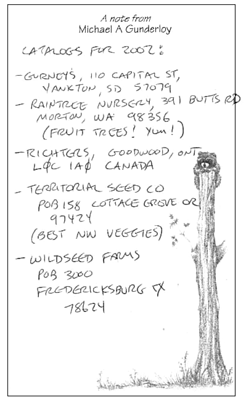 A note from
Michael A Gunderloy
CATALOGS FOR 2002:
- GURNEY'S, 110 CAPITAL ST,
YANKTON, SD 57079
- RAINTREE NURSERY, 391 BUTTS RD
MORTON, WA 98356
(FRUIT TREES! YUM!)
- RICHTERS, GOODWOOD, ONT
LØC 1AØ CANADA
- TERRITORIAL SEED CO
POB 158 COTTAGE GROVE OR
97424
(BEST NW VEGGIES)
- WILDSEED FARMS
POB 3000
FREDERICKSBURG TX
78624